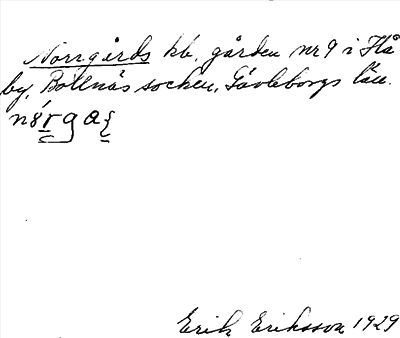 Norrgårds kb. gården nr 9 i Hå
by, Bollnäs socken, Gävleborgs län.
Erik Eriksson 1929